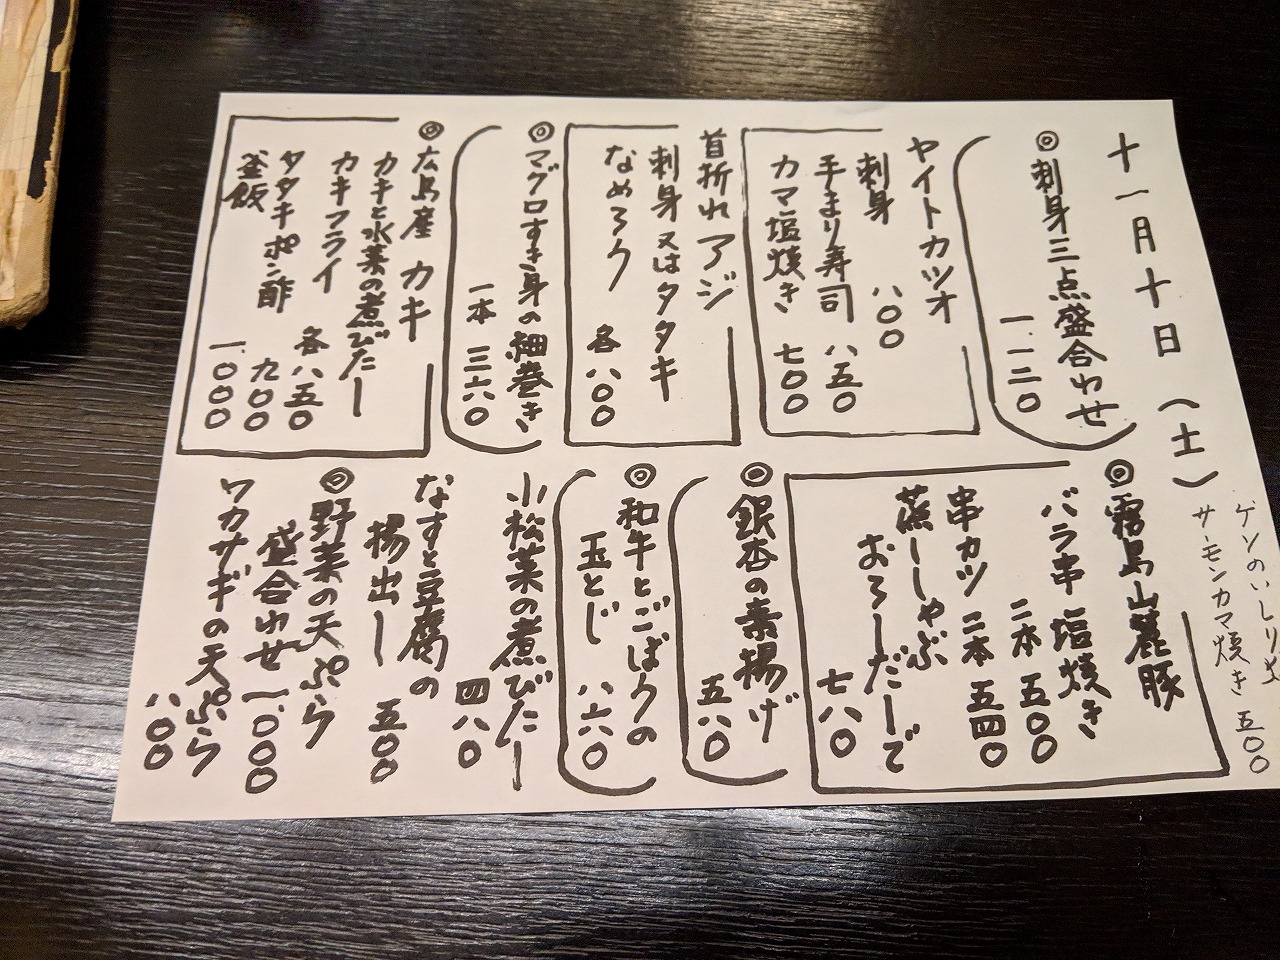 十一月十日(土)
◎刺身三点盛合わせ
一、一二〇
ヤイトカツオ
刺身 八〇〇
手まり寿司 八五〇
カマ塩焼き 七〇〇
首折れアジ
刺身又はタタキ
なめろう 各八〇〇
◎マグロすき身の細巻き
一本 三六〇
◎広島産 カキ
カキと水菜の煮びたし
カキフライ 各八五〇
タタキポン酢 九〇〇
釜飯 一、〇〇〇
◎霧島山麓豚
バラ串 塩焼き
二本 五〇〇
串カツ 二本 五四〇
蒸ししゃぶ
おろしだしで
七八〇
◎銀杏の素揚げ
五八〇
◎和牛とごぼうの
玉とじ 八六〇
小松菜の煮びたし
四八〇
なすと豆腐の
揚出し 五〇〇
◎野菜の天ぷら
盛合わせ 一、〇〇〇
ワカサギの天ぷら
八〇〇
ゲソのいしり
サーモンカマ焼き 五〇〇